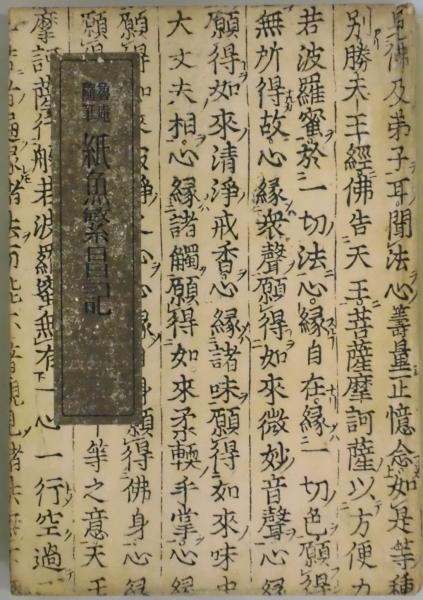 見佛及弟子耳聞法心籌量止憶念如是等種
別勝天王經佛告天王菩薩摩訶薩以方便力
若波羅蜜於一切法心縁自在縁一切色願得
無所得故心縁衆聲願得如來微妙音聲心縁
願得如來清淨戒香心縁諸味願得如來味中
大丈夫相心縁諸觸願得如來柔輭手掌心縁
願得如來 身願得佛身心縁
等之意天王
魯庵隨筆
紙魚繁昌記
摩訶薩行般若波羅蜜無有一心一行空過